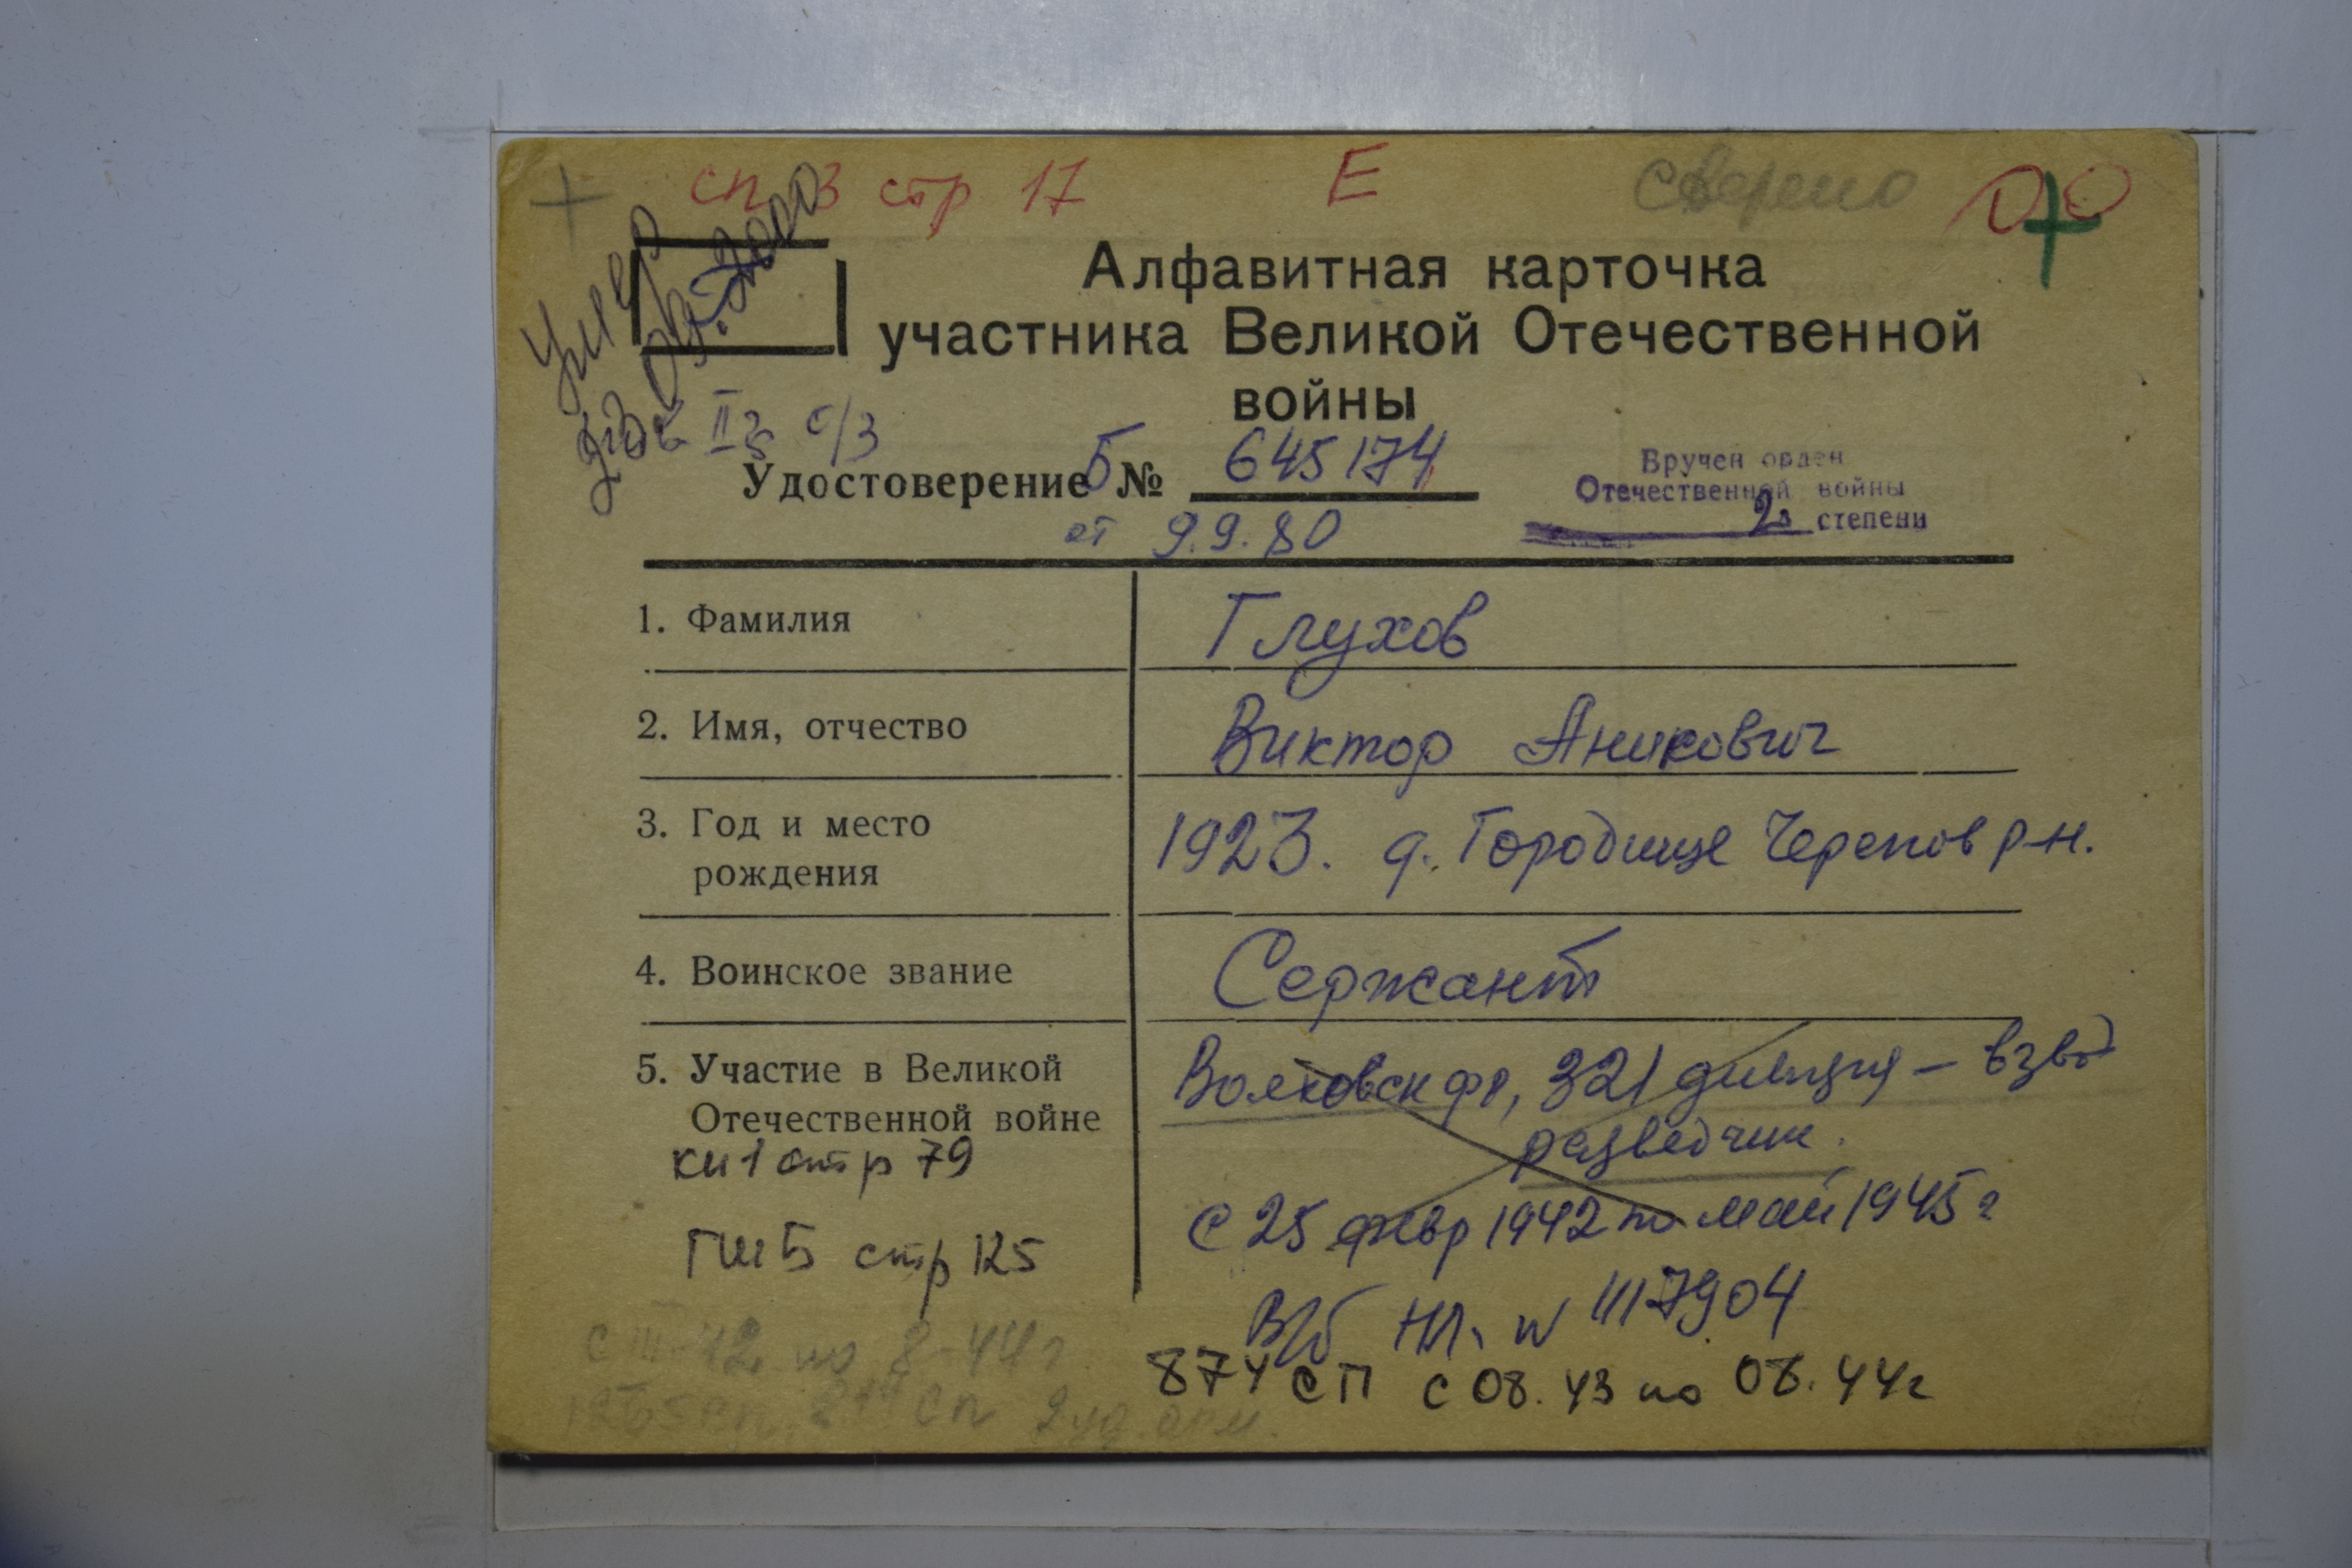 сп 3 стр 17 Е сверено
умер
09.2000
Алфавитная карточка
участника Великой Отечественной
войны
IIг с/з
Удостоверение Б № 645174
от 9.9.80
Вручен орден
Отечественной войны
2й степени
1. Фамилия Глухов
2. Имя, отчество Виктор Аникович
3. Год и место 1923. д. Городище Черепов р-н.
рождения
4. Воинское звание Сержант
5. Участие в Великой Волховск фр, 321 дивизия – взвод
Отечественной войне разведчик.
кн 1 стр 79
с 25 февр 1942 по май 1945 г
ГШБ стр 125
В/б НЛ. № 1117904
с III-42 по 8-44 г
874 СП с 08.43 по 08.44г
874 сп 2 уд. арм.